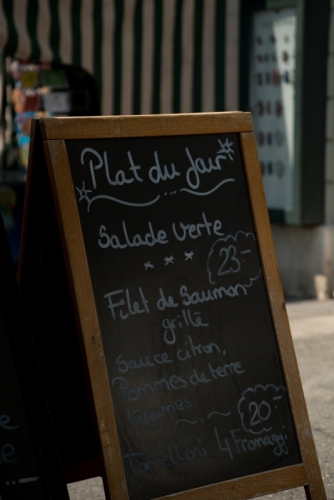 Plat du Jour
Salade verte
23
Filet de Saumon
grillé
Sauce citron,
Pommes de terre
Légumes
20
Tortelloni 4 Fromaggi